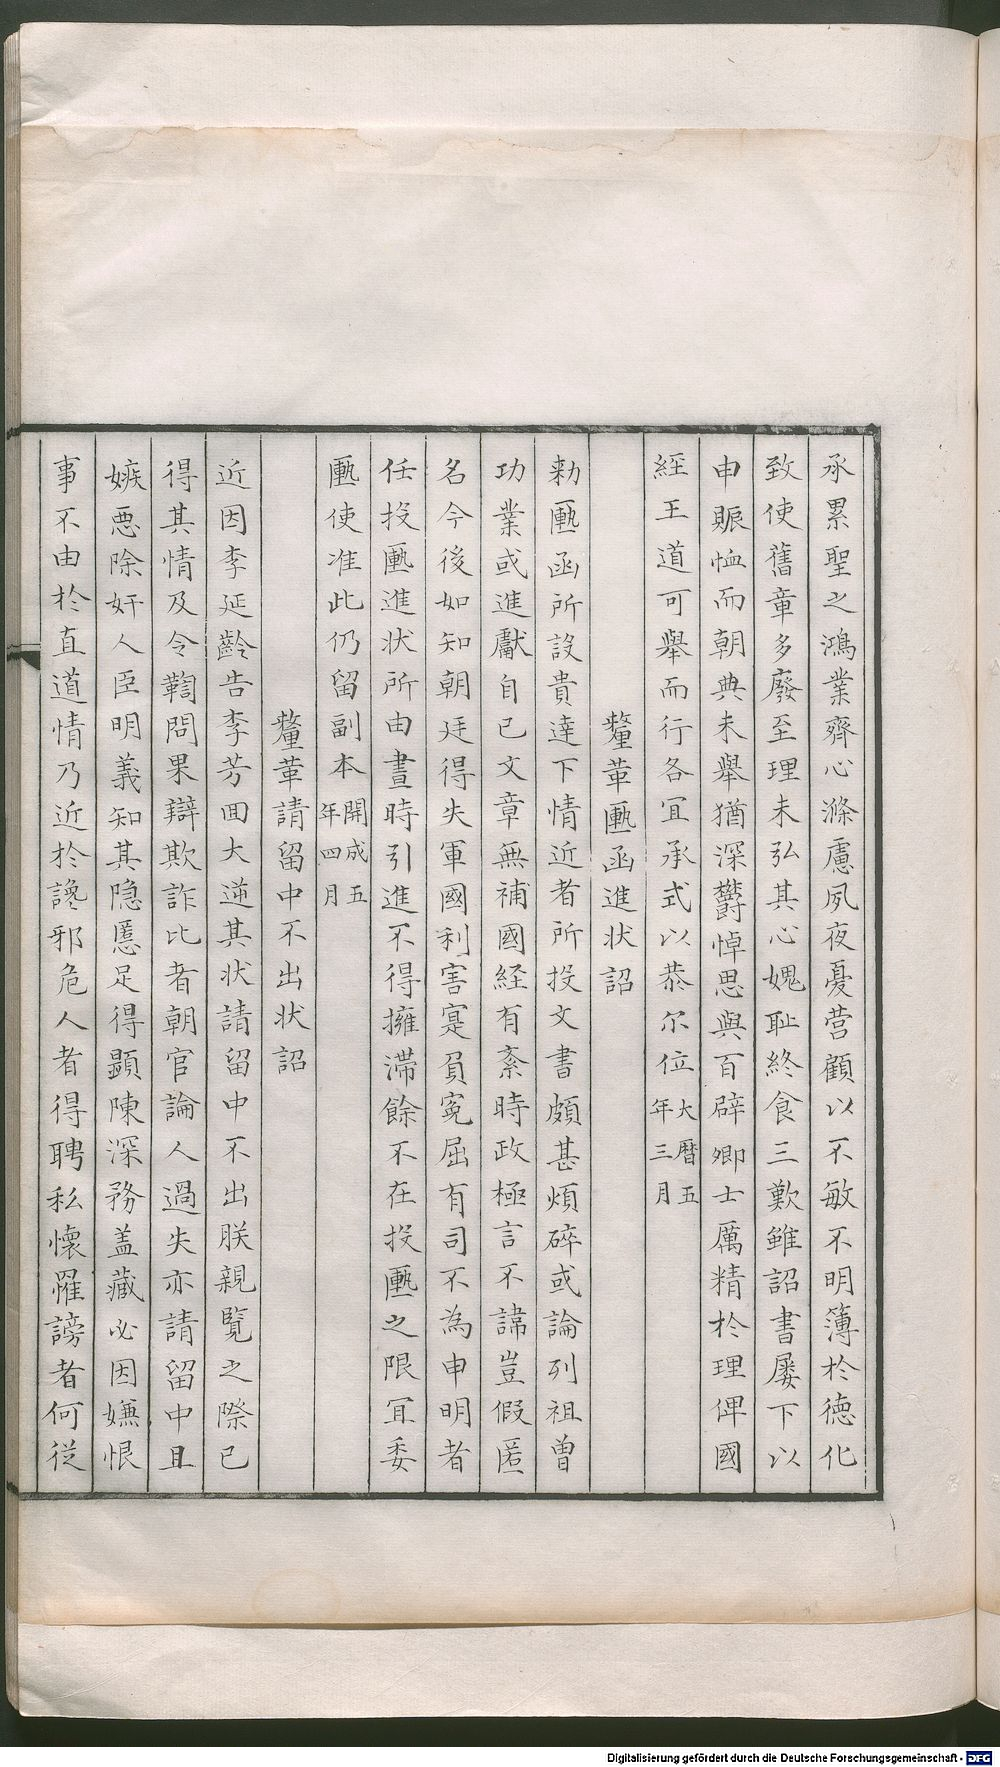 承累聖之鴻業齊心滌慮夙夜憂營顧以不敏不明簿於德化
致使舊章多廢至理未弘其心媿耻終食三歎雖詔書屢下以
申賑恤而朝典未舉猶深欝悼思與百辟卿士厲精於理俾國
經王道可舉而行各冝承式以恭尔位大曆五年三月
釐革匭函進状詔
勑匭函所設貴達下情近者所投文書頗甚煩碎或論列祖曽
功業或進獻自已文章無補國経有紊時政極言不諱豈假匿
名今後如知朝廷得失軍國利害寔負寃屈有司不為申明者
任投匭進状所由晝時引進不得擁滞餘不在投匭之限冝委
匭使准此仍留副本開成五年四月
釐革請留中不出状詔
近因李延齡告李芳囬大逆其状請留中不出朕親覽之際已
得其情及令鞫問果辯欺詐比者朝官論人過失亦請留中且
嫉惡除奸人臣明義知其隐慝足得顯陳深務盖藏必因嫌恨
事不由於直道情乃近於讒邪危人者得聘私懐罹謗者何従
Digitalisierung gefördert durch die Deutsche Forschungsgemeinschaft - DFG